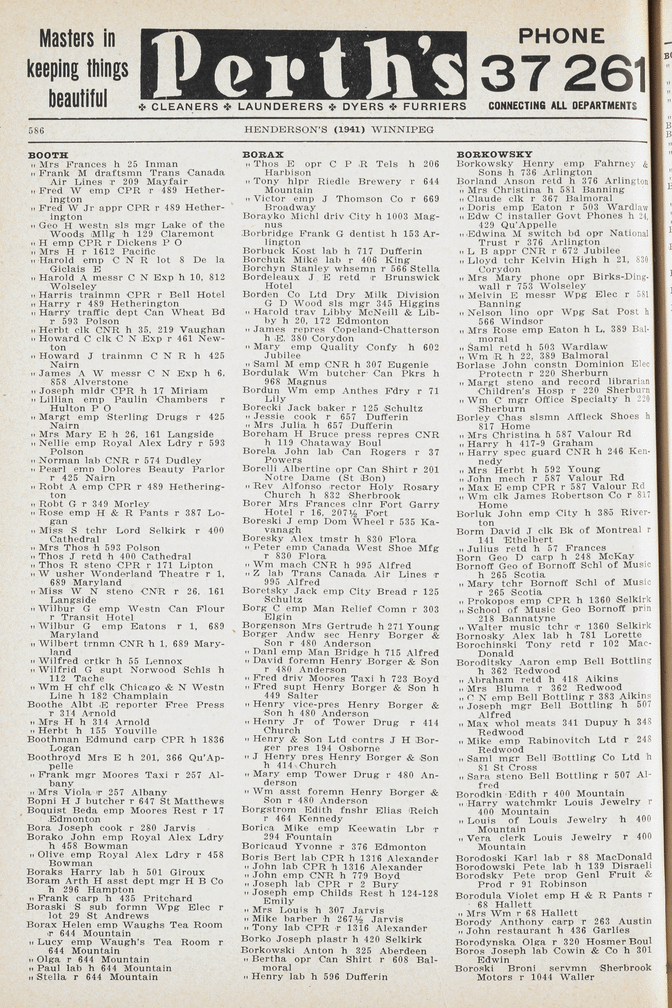 Masters in
keeping things
beautiful
Perth's
✥ CLEANERS ✥ LAUNDERERS ✥ DYERS ✥ FURRIERS
PHONE
37 261
CONNECTING ALL DEPARTMENTS
586
HENDERSON'S (1941) WINNIPEG
BOOTH
„ Mrs Frances h 25 Inman
„ Frank M draftsmn Trans Canada
Air Lines r 209 Mayfair
„ Fred W emp CPR r 489 Hether-
ington
„ Fred W Jr appr CPR r 489 Hether-
ington
„ Geo H westn sls mgr Lake of the
Woods Mllg h 129 Claremont
„ H emp CPR r Dickens P O
„ Mrs H r 1612 Pacific
„ Harold emp C N R lot 8 De la
Giclais E
„ Harold A messr C N Exp h 10, 812
Wolseley
„ Harris trainmn CPR r Bell Hotel
„ Harry r 489 Hetherington
„ Harry traffic dept Can Wheat Bd
r 593 Polson
„ Herbt clk CNR h 35, 219 Vaughan
„ Howard C clk C N Exp r 461 New-
ton
„ Howard J trainmn C N R h 425
Nairn
„ James A W messr C N Exp h 6,
858 Alverstone
„ Joseph mldr CPR h 17 Miriam
„ Lillian emp Paulin Chambers r
Hulton P O
„ Margt emp Sterling Drugs r 425
Nairn
„ Mrs Mary E h 26, 161 Langside
„ Nellie emp Royal Alex Ldry r 593
Polson
„ Norman lab CNR r 574 Dudley
„ Pearl emp Dolores Beauty Parlor
r 425 Nairn
„ Robt A emp CPR r 489 Hethering-
ton
„ Robt G r 349 Morley
„ Rose emp H & R Pants r 387 Lo-
gan
„ Miss S tchr Lord Selkirk r 400
Cathedral
„ Mrs Thos h 593 Polson
„ Thos J retd h 400 Cathedral
„ Thos R steno CPR r 171 Lipton
„ W usher Wonderland Theatre r 1,
689 Maryland
„ Miss W N steno CNR r 26, 161
Langside
„ Wilbur G emp Westn Can Flour
r Transit Hotel
„ Wilbur G emp Eatons r 1, 689
Maryland
„ Wilbert trnmn CNR h 1, 689 Mary-
land
„ Wilfred crtkr h 55 Lennox
„ Wilfrid G supt Norwood Schls h
112 Tache
„ Wm H chf clk Chicago & N Westn
Line h 182 Champlain
Boothe Albt E reporter Free Press
r 314 Arnold
„ Mrs H h 314 Arnold
„ Herbt h 155 Youville
Boothman Edmund carp CPR h 1836
Logan
Boothroyd Mrs E h 201, 366 Qu'Ap-
pelle
„ Frank mgr Moores Taxi r 257 Al-
bany
„ Mrs Viola r 257 Albany
Bopni H J butcher r 647 St Matthews
Boquist Beda emp Moores Rest r 17
Edmonton
Bora Joseph cook r 280 Jarvis
Borako John emp Royal Alex Ldry
h 458 Bowman
„ Olive emp Royal Alex Ldry r 458
Bowman
Boraks Harry lab h 501 Giroux
Boram Arth H asst dept mgr H B Co
h 296 Hampton
„ Frank carp h 435 Pritchard
Boraski S sub formn Wpg Elec r
lot 29 St Andrews
Borax Helen emp Waughs Tea Room
r 644 Mountain
„ Lucy emp Waugh's Tea Room r
644 Mountain
„ Olga r 644 Mountain
„ Paul lab h 644 Mountain
„ Stella r 644 Mountain
BORAX
„ Thos E opr C P R Tels h 206
Harbison
„ Tony hlpr Riedle Brewery r 644
Mountain
„ Victor emp J Thomson Co r 669
Broadway
Borayko Michl driv City h 1003 Mag-
nus
Borbridge Frank G dentist h 153 Ar-
lington
Borbuck Kost lab h 717 Dufferin
Borchuk Mike lab r 406 King
Borchyn Stanley whsemn r 566 Stella
Bordeleaux J E retd r Brunswick
Hotel
Borden Co Ltd Dry Milk Division
G D Wood sls mgr 345 Higgins
„ Harold trav Libby McNeill & Lib-
by h 20, 172 Edmonton
„ James repres Copeland-Chatterson
h E, 380 Corydon
„ Mary emp Quality Confy h 602
Jubilee
„ Saml M emp CNR h 307 Eugenie
Bordulak Wm butcher Can Pkrs h
968 Magnus
Bordun Wm emp Anthes Fdry r 71
Lily
Borecki Jack baker r 125 Schultz
„ Jessie cook r 657 Dufferin
„ Mrs Julia h 657 Dufferin
Boreham H Bruce press repres CNR
h 119 Chataway Boul
Borela John lab Can Rogers r 37
Powers
Borelli Albertine opr Can Shirt r 201
Notre Dame (St Bon)
„ Rev Alfonso rector Holy Rosary
Church h 832 Sherbrook
Borer Mrs Frances clnr Fort Garry
Hotel r 16, 207½ Fort
Boreski J emp Dom Wheel r 535 Ka-
vanagh
Boresky Alex tmstr h 830 Flora
„ Peter emp Canada West Shoe Mfg
r 830 Flora
„ Wm mach CNR h 995 Alfred
„ Z lab Trans Canada Air Lines r
995 Alfred
Boretsky Jack emp City Bread r 125
Schultz
Borg C emp Man Relief Comn r 303
Elgin
Borgenson Mrs Gertrude h 271 Young
Borger Andw sec Henry Borger &
Son r 480 Anderson
„ Danl emp Man Bridge h 715 Alfred
„ David foremn Henry Borger & Son
r 480 Anderson
„ Fred driv Moores Taxi r 723 Boyd
„ Fred supt Henry Borger & Son h
449 Salter
„ Henry vice-pres Henry Borger &
Son h 480 Anderson
„ Henry Jr of Tower Drug r 414
Church
„ Henry & Son Ltd contrs J H Bor-
ger pres 194 Osborne
„ J Henry pres Henry Borger & Son
h 414 Church
„ Mary emp Tower Drug r 480 An-
derson
„ Wm asst foremn Henry Borger &
Son r 480 Anderson
Borgstrom Edith fnshr Elias Reich
r 464 Kennedy
Borica Mike emp Keewatin Lbr r
294 Fountain
Boricaud Yvonne r 376 Edmonton
Boris Bert lab CPR h 1316 Alexander
„ John lab CPR h 1316 Alexander
„ John emp CNR h 779 Boyd
„ Joseph lab CPR r 2 Bury
„ Joseph emp Childs Rest h 124-128
Emily
„ Mrs Louis h 307 Jarvis
„ Mike barber h 267½ Jarvis
„ Tony lab CPR r 1316 Alexander
Borko Joseph plastr h 420 Selkirk
Borkowski Anton h 325 Aberdeen
„ Bertha opr Can Shirt r 608 Bal-
moral
„ Henry lab h 596 Dufferin
BORKOWSKY
Borkowsky Henry emp Fahrney &
Sons h 736 Arlington
Borland Anson retd h 376 Arlington
„ Mrs Christina h 581 Banning
„ Claude clk r 367 Balmoral
„ Doris emp Eaton r 503 Wardlaw
„ Edw C installer Govt Phones h 24,
429 Qu'Appelle
„ Edwina M switch bd opr National
Trust r 376 Arlington
„ L B appr CNR r 672 Jubilee
„ Lloyd tchr Kelvin High h 21, 830
Corydon
„ Mrs Mary phone opr Birks-Ding-
wall r 753 Wolseley
„ Melvin E messr Wpg Elec r 581
Banning
„ Nelson lino opr Wpg Sat Post h
566 Windsor
„ Mrs Rose emp Eaton h L, 389 Bal-
moral
„ Saml retd h 503 Wardlaw
„ Wm R h 22, 389 Balmoral
Borlase John constn Dominion Elec
Protectn r 220 Sherburn
„ Margt steno and record librarian
Children's Hosp r 220 Sherburn
„ Wm C mgr Office Specialty h 220
Sherburn
Borley Chas slsmn Affleck Shoes h
817 Home
„ Mrs Christina h 587 Valour Rd
„ Harry h 417-9 Graham
„ Harry spec guard CNR h 246 Ken-
nedy
„ Mrs Herbt h 592 Young
„ John mech r 587 Valour Rd
„ Max E emp CPR r 587 Valour Rd
„ Wm clk James Robertson Co r 817
Home
Borluk John emp City h 385 River-
ton
Borm David J clk Bk of Montreal r
141 Ethelbert
„ Julius retd h 57 Frances
Born Geo D carp h 248 McKay
Bornoff Geo of Bornoff Schl of Music
h 265 Scotia
„ Mary tchr Bornoff Schl of Music
r 265 Scotia
„ Prokopos emp CPR h 1360 Selkirk
„ School of Music Geo Bornoff prin
218 Bannatyne
„ Walter music tchr r 1360 Selkirk
Bornosky Alex lab h 781 Lorette
Borochinski Tony retd r 102 Mac-
Donald
Boroditsky Aaron emp Bell Bottling
h 362 Redwood
„ Abraham retd h 418 Aikins
„ Mrs Bluma r 362 Redwood
„ C N emp Bell Bottling r 383 Aikins
„ Joseph mgr Bell Bottling h 507
Alfred
„ Max whol meats 341 Dupuy h 348
Redwood
„ Mike emp Rabinovitch Ltd r 248
Redwood
„ Saml mgr Bell Bottling Co Ltd h
81 St Cross
„ Sara steno Bell Bottling r 507 Al-
fred
Borodkin Edith r 400 Mountain
„ Harry watchmkr Louis Jewelry r
400 Mountain
„ Louis of Louis Jewelry h 400
Mountain
„ Vera clerk Louis Jewelry r 400
Mountain
Borodoski Karl lab r 88 MacDonald
Borodowski Pete lab h 139 Disraeli
Borodsky Pete prop Genl Fruit &
Prod r 91 Robinson
Borodula Violet emp H & R Pants r
68 Hallett
„ Mrs Wm r 68 Hallett
Borody Anthony carp r 263 Austin
„ John restaurant h 436 Garlies
Borodynska Olga r 320 Hosmer Boul
Boros Joseph lab Cowin & Co h 301
Edwin
Boroski Broni servmn Sherbrook
Motors r 1044 Waller